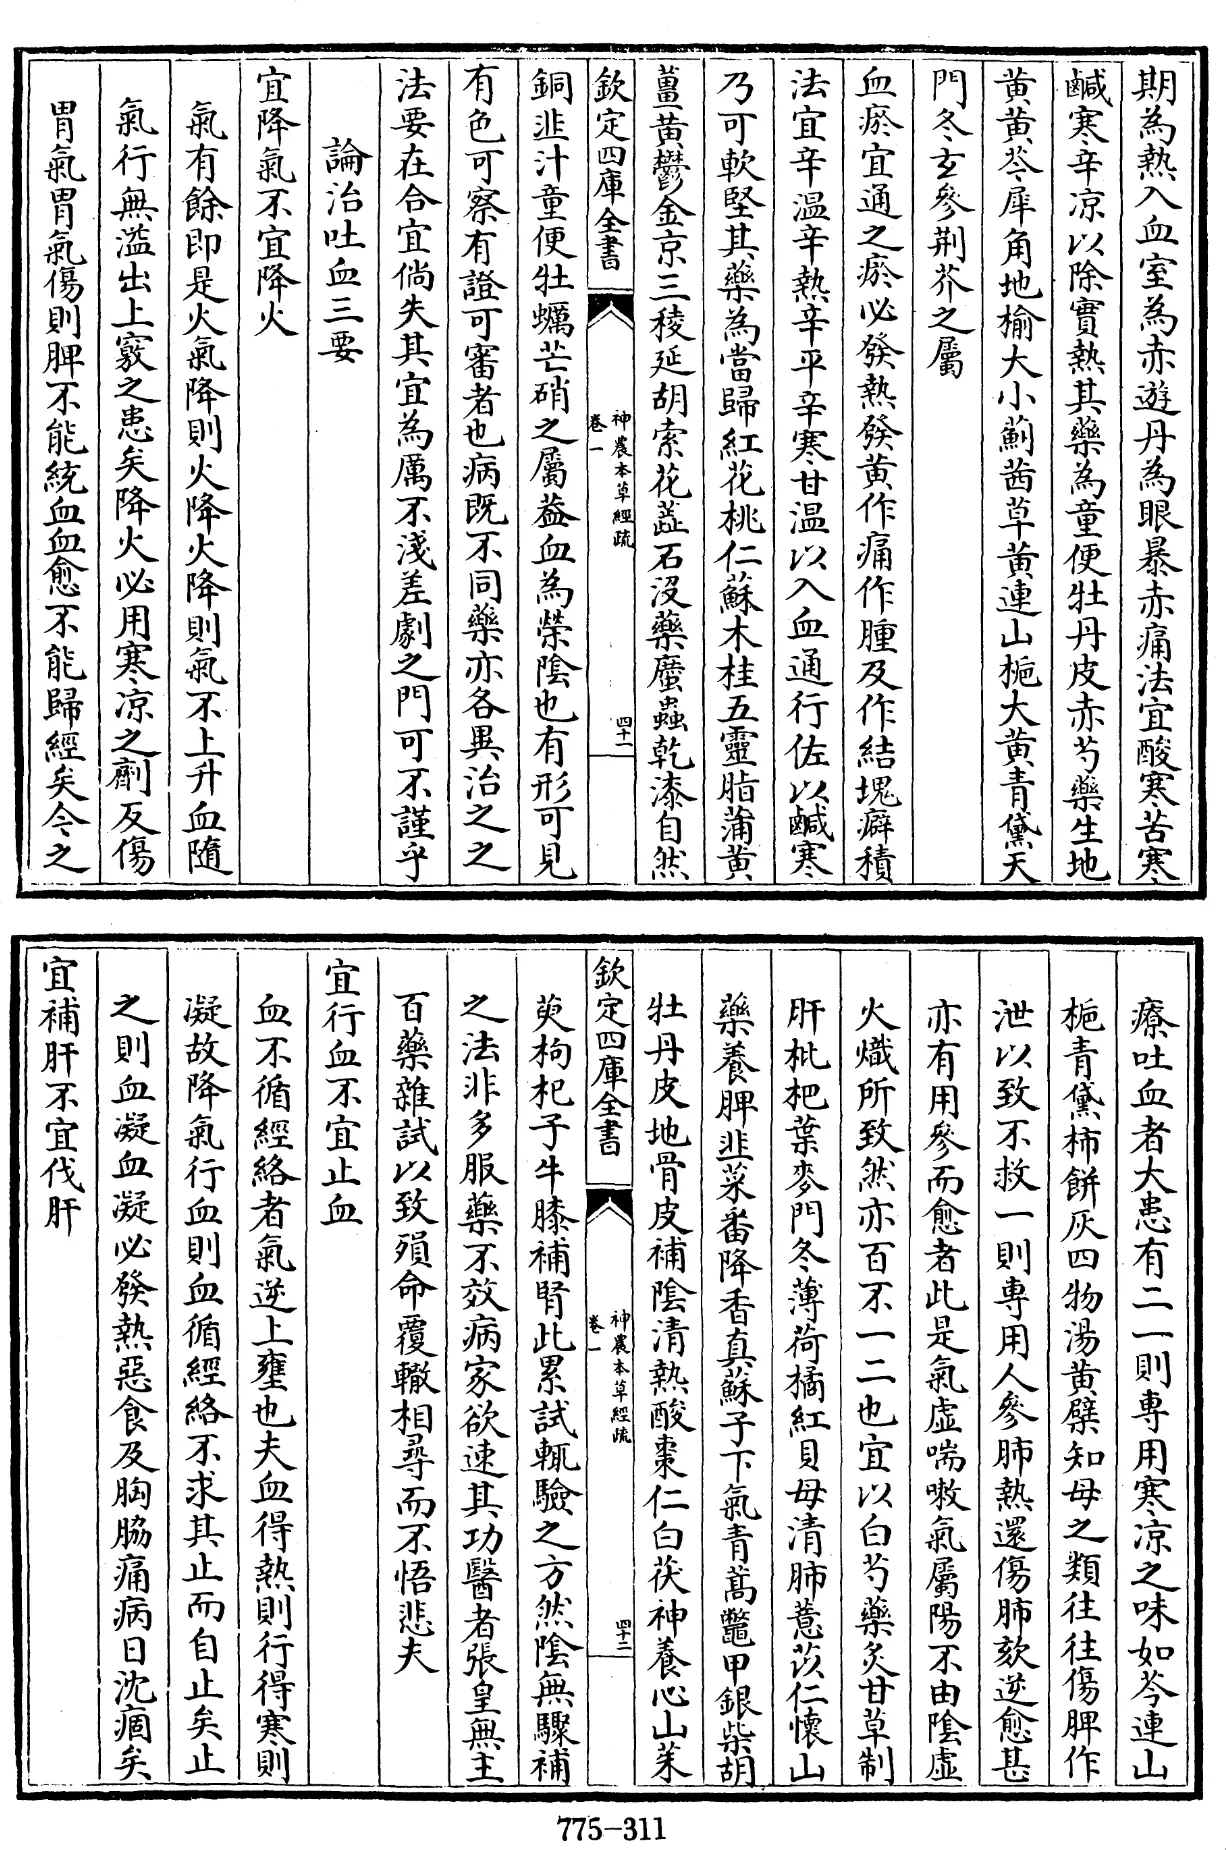 期為熱入血室為赤遊丹為眼暴赤痛法宜酸寒苦寒
鹹寒辛凉以除實熱其藥為童便牡丹皮赤芍藥生地
黄黄芩犀角地榆大小薊茜草黄連山梔大黄青黛天
門冬玄參荆芥之屬
血瘀宜通之瘀必發熱發黄作痛作腫及作結塊癖積
法宜辛温辛熱辛平辛寒甘温以入血通行佐以鹹寒
乃可軟堅其藥為當歸紅花桃仁蘇木桂五靈脂蒲黄
薑黄鬱金京三稜延胡索花蕋石沒藥䗪蟲乾漆自然
欽定四庫全書
神農本草經疏
卷一
四十一
銅韭汁童便牡蠣芒硝之屬葢血為榮陰也有形可見
有色可察有證可審者也病既不同藥亦各異治之之
法要在合宜倘失其宜為厲不淺差劇之門可不謹乎
論治吐血三要
宜降氣不宜降火
氣有餘即是火氣降則火降火降則氣不上升血隨
氣行無溢出上竅之患矣降火必用寒凉之劑反傷
胃氣胃氣傷則脾不能統血血愈不能歸經矣今之
療吐血者大患有二一則専用寒凉之味如芩連山
梔青黛柿餅灰四物湯黄檗知母之類往往傷脾作
泄以致不救一則専用人參肺熱還傷肺欬逆愈甚
亦有用參而愈者此是氣虚喘嗽氣屬陽不由陰虚
火熾所致然亦百不一二也宜以白芍藥炙甘草制
肝枇杷葉麥門冬薄荷橘紅貝母清肺薏苡仁懷山
藥養脾韭菜番降香真蘇子下氣青蒿鼈甲銀柴胡
牡丹皮地骨皮補陰清熱酸棗仁白茯神養心山茱
欽定四庫全書
神農本草經疏
卷一
四十二
萸枸杞子牛膝補腎此累試輒驗之方然陰無驟補
之法非多服藥不效病家欲速其功醫者張皇無主
百藥雜試以致殞命覆轍相尋而不悟悲夫
宜行血不宜止血
血不循經絡者氣逆上壅也夫血得熱則行得寒則
凝故降氣行血則血循經絡不求其止而自止矣止
之則血凝血凝必發熱惡食及胸脇痛病日沈痼矣
宜補肝不宜伐肝
775-311